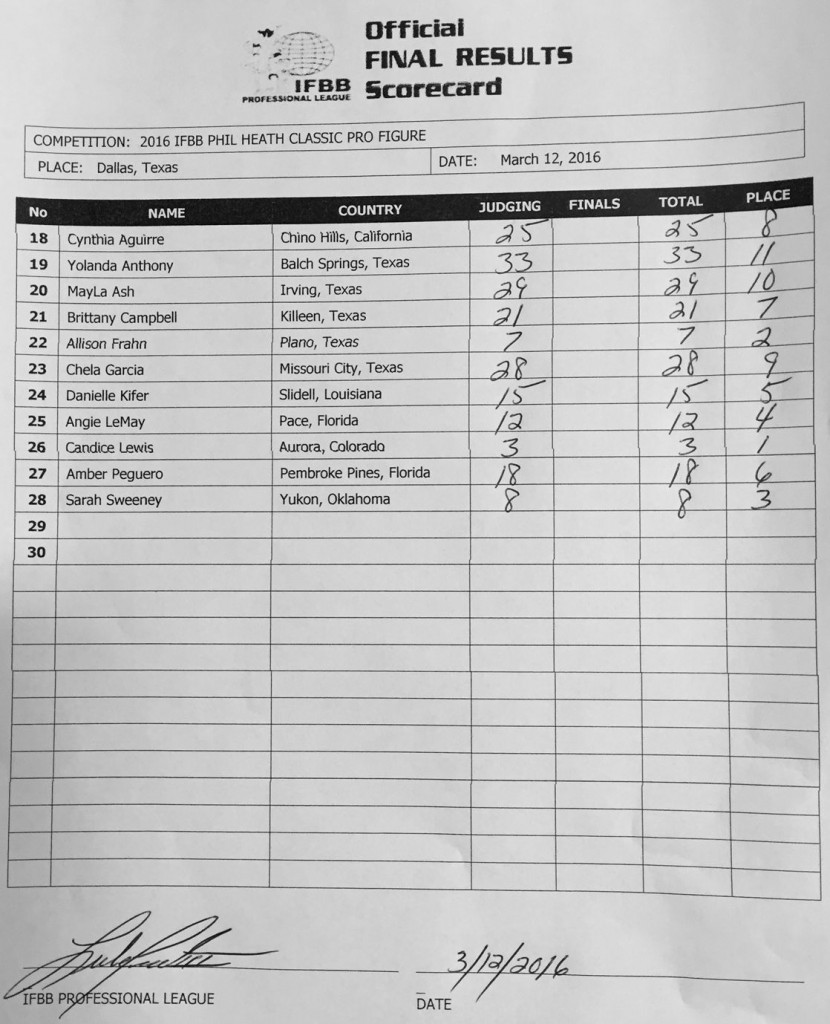 Official
FINAL RESULTS
Scorecard
IFBB
PROFESSIONAL LEAGUE
COMPETITION: 2016 IFBB PHIL HEATH CLASSIC PRO FIGURE
PLACE: Dallas, Texas DATE: March 12, 2016
No NAME COUNTRY JUDGING FINALS TOTAL PLACE
18 Cynthia Aguirre Chino Hills, California 25 25 8
19 Yolanda Anthony Balch Springs, Texas 33 33 11
20 MayLa Ash Irving, Texas 29 29 10
21 Brittany Campbell Killeen, Texas 21 21 7
22 Allison Frahn Plano, Texas 7 7 2
23 Chela Garcia Missouri City, Texas 28 28 9
24 Danielle Kifer Slidell, Louisiana 15 15 5
25 Angie LeMay Pace, Florida 12 12 4
26 Candice Lewis Aurora, Colorado 3 3 1
27 Amber Peguero Pembroke Pines, Florida 18 18 6
28 Sarah Sweeney Yukon, Oklahoma 8 8 3
29
30
3/12/2016
IFBB PROFESSIONAL LEAGUE DATE